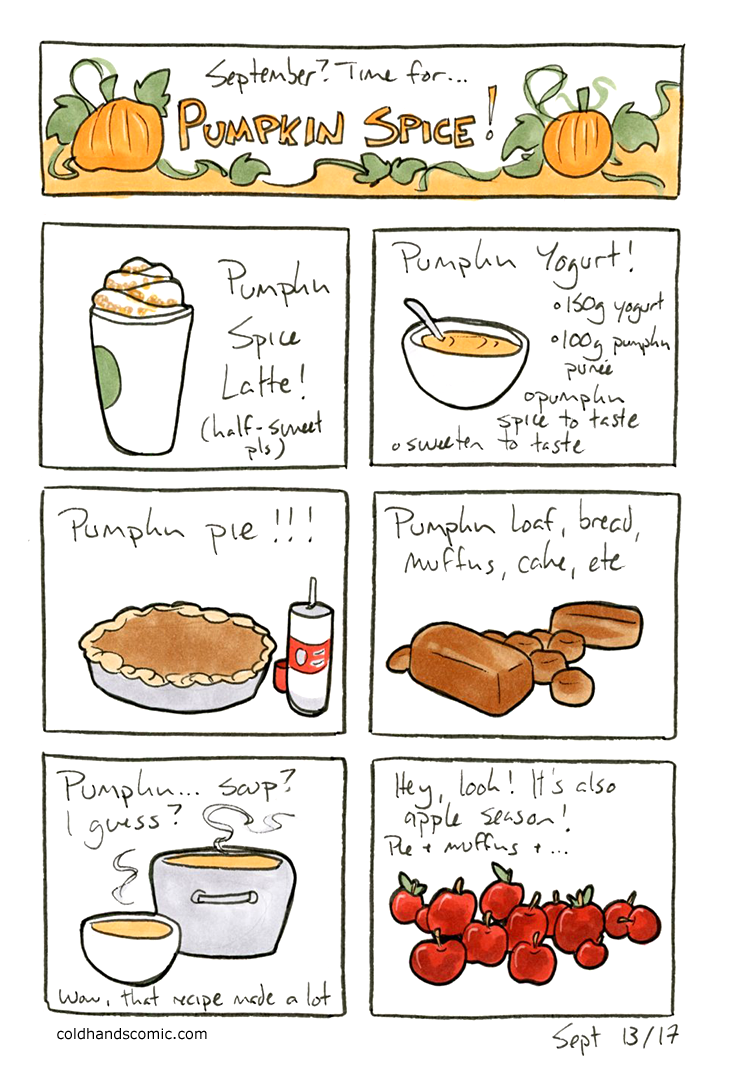 September? Time for...
PUMPKIN SPICE!
Pumpkin
Spice
Latte!
(half-sweet
pls)
Pumpkin Yogurt!
◦150g yogurt
◦100g pumpkin
purée
◦pumpkin
spice to taste
◦sweeten to taste
Pumpkin pie!!!
Pumpkin loaf, bread,
muffins, cake, etc
Pumpkin... soup?
I guess?
Wow, that recipe made a lot
Hey, look! It's also
apple season!
Pie + muffins + ...
coldhandscomic.com
Sept 13/17